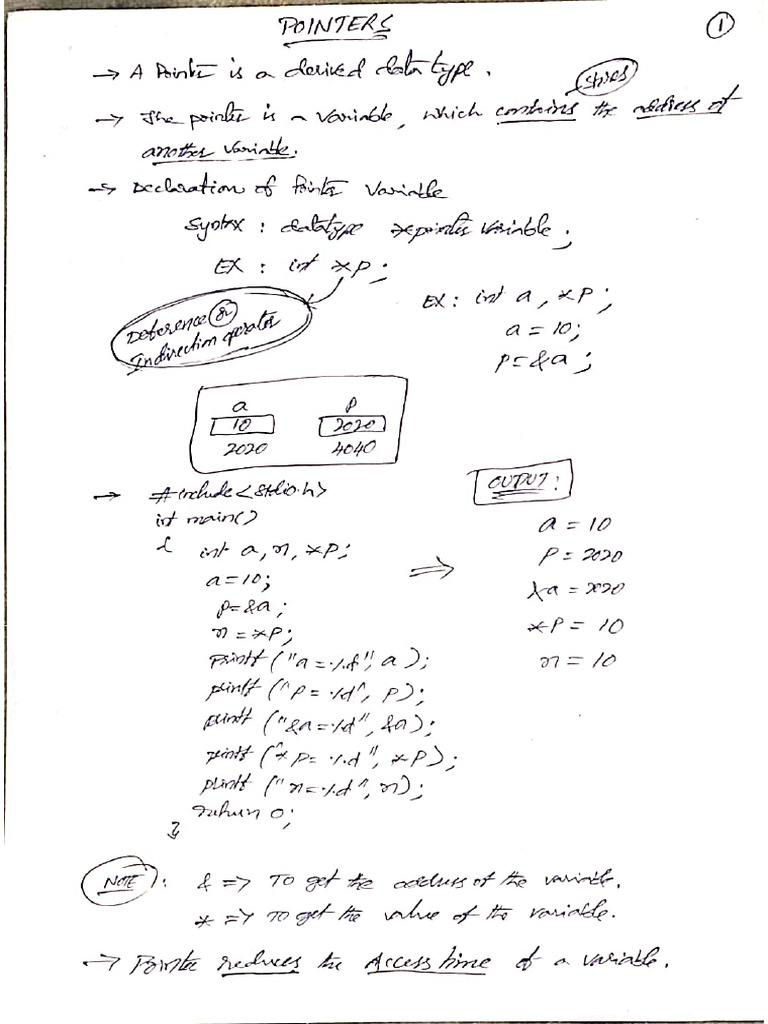 POINTERS
1
→ A Pointer is a derived data type.
(stores)
→ The pointer is a variable, which contains the address of
another variable.
→ Declaration of Pointer Variable
Syntax : datatype *pointer variable ;
EX : int *p ;
Deference or
Indirection operator
EX : int a, *p ;
a = 10;
p = &a ;
a p
10 2020
2020 4040
→ #include<stdio.h>
int main()
{ int a, n, *p;
a=10;
p=&a ;
n = *p;
printf ("a=%d", a);
printf ("p=%d", p);
printf ("&a=%d", &a);
printf ("*p=%d", *p);
printf ("n=%d", n);
return 0;
}
⇒
OUTPUT :
a = 10
p = 2020
&a = 2020
*p = 10
n = 10
NOTE : & => To get the address of the variable.
* => To get the value of the variable.
→ Pointer reduces the Access time of a variable.